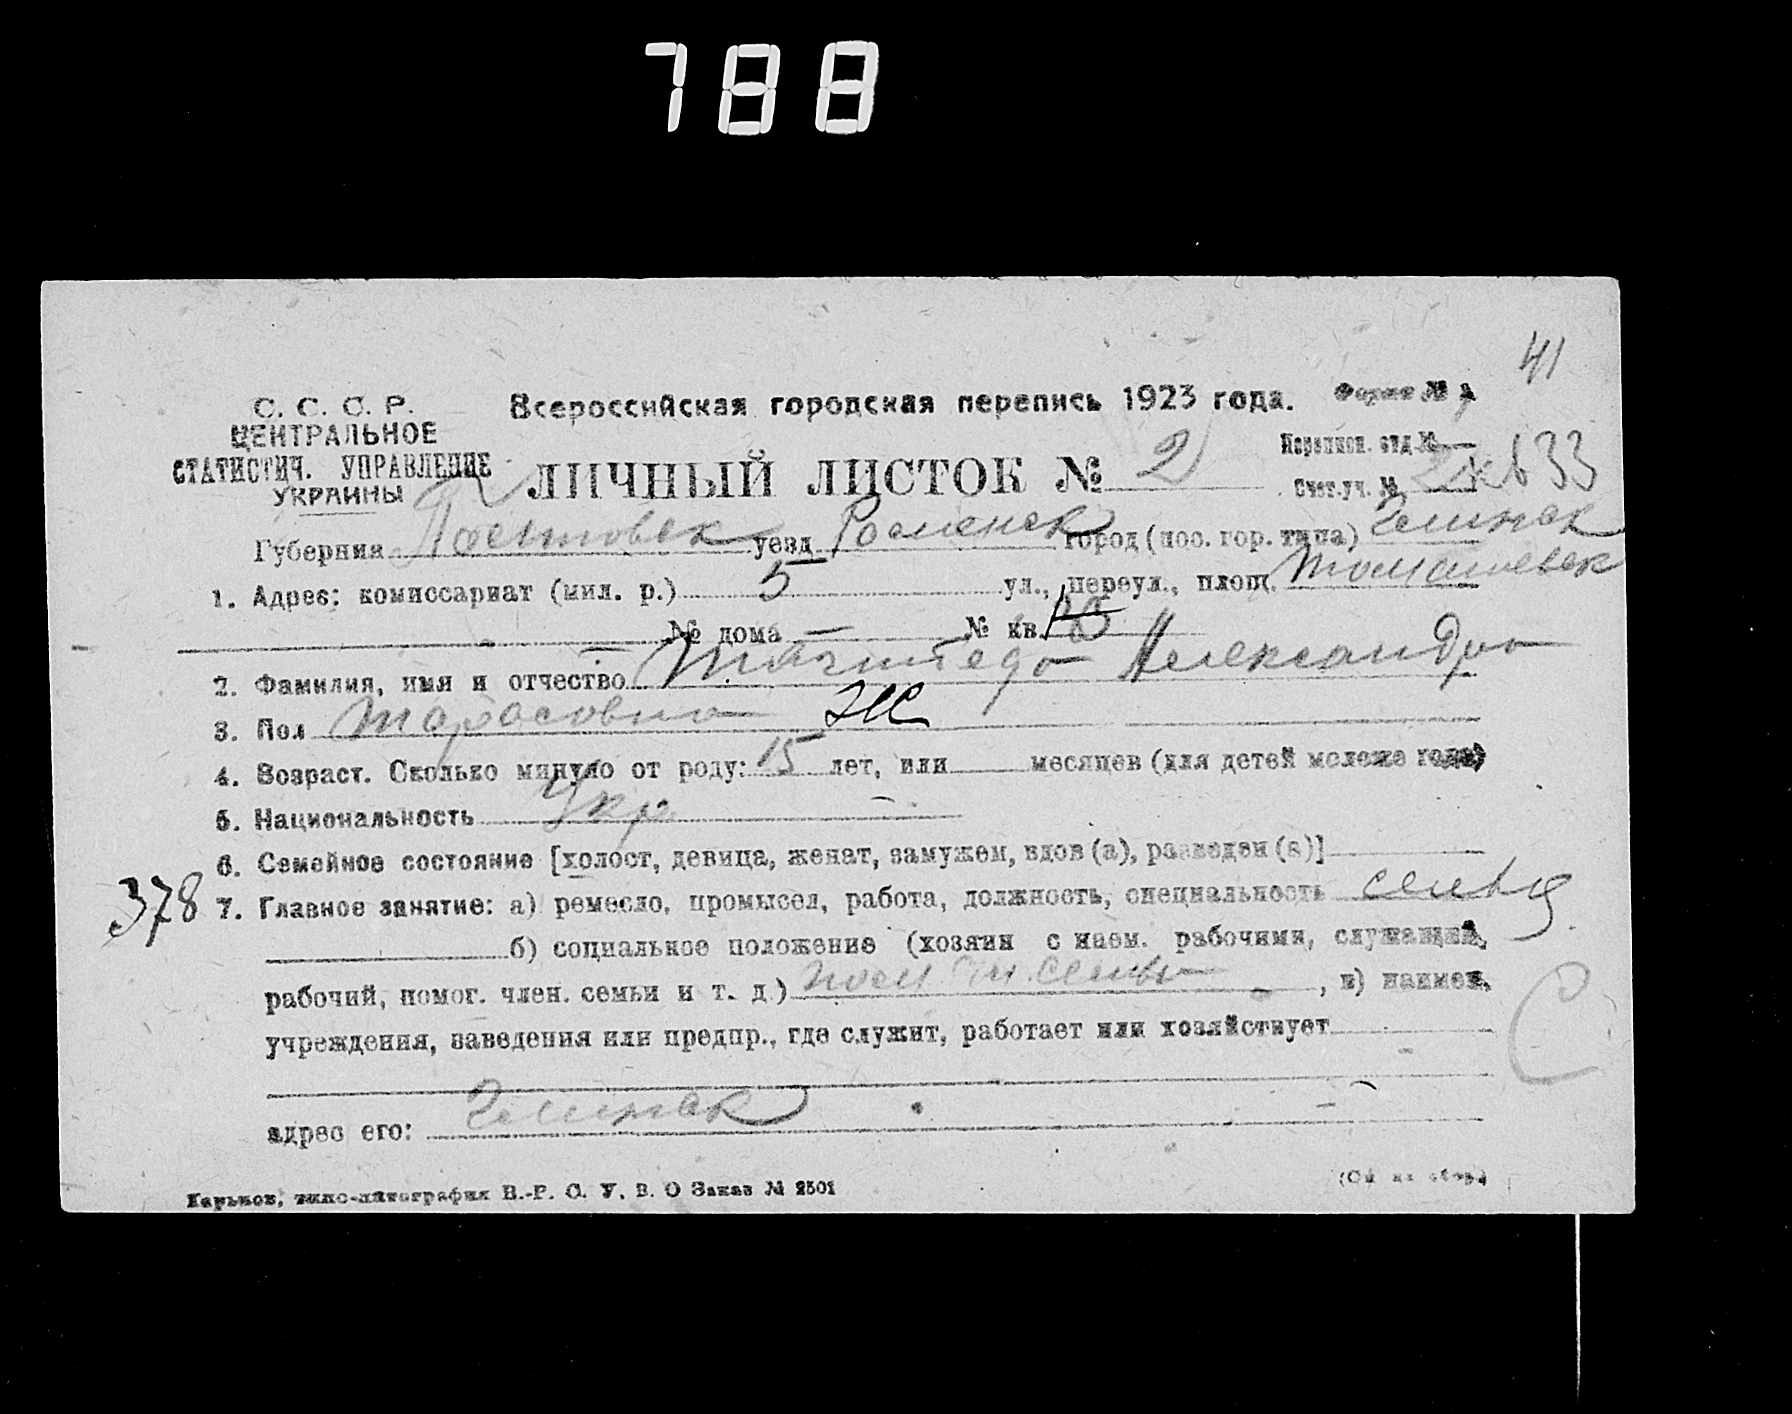 788
41
С. С. С. Р.
ЦЕНТРАЛЬНОЕ
СТАТИСТИЧ. УПРАВЛЕНИЕ
УКРАИНЫ
Всероссийская городская перепись 1923 года.
Форма №
Переписн. отд. №
ЛИЧНЫЙ ЛИСТОК № 2
Счет.уч. № 33
Губерния уезд Роменск город (пос. гор. типа) Глинск
1. Адрес: комиссариат (мил. р.) 5 ул., переул., площ.
№ дома — № кв.
2. Фамилия, имя и отчество Александра
3. Пол Тарасовна ж
4. Возраст. Сколько минуло от роду: 15 лет, или месяцев (для детей моложе года)
5. Национальность Укр
6. Семейное состояние [холост, девица, женат, замужем, вдов (а), разведен (а)]
378
7. Главное занятие: а) ремесло, промысел, работа, должность, специальность
б) социальное положение (хозяин с наем. рабочими, служащий,
рабочий, помог. член. семьи и т. д.) пом чл. семьи, в) наимен.
учреждения, заведения или предпр., где служит, работает или хозяйствует
С
адрес его: Глинск
Харьков, типо-литография В.-Р. С. У. В. О Заказ № 2501
(См на обор.)